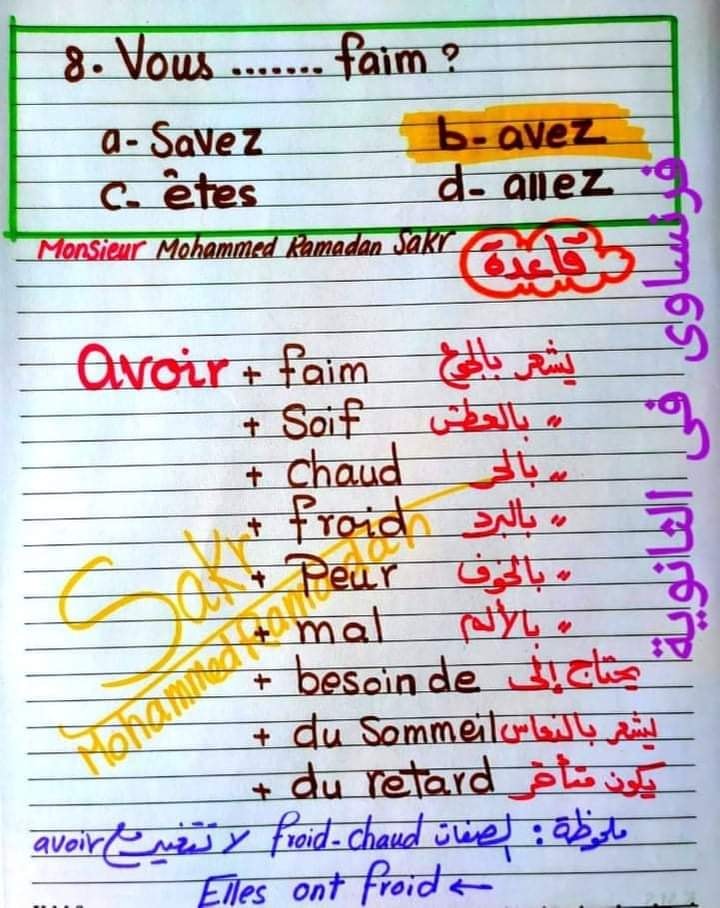 8. Vous ....... faim ?
a- Savez b- avez
c- êtes d- allez
Monsieur Mohammed Ramadan Sakr
قاعدة
avoir + faim يشعر بالجوع
+ Soif " بالعطش
+ chaud " بالحر
+ froid " بالبرد
+ Peur " بالخوف
+ mal " بالألم
+ besoin de يحتاج إلى
+ du Sommeil يشعر بالنعاس
+ du retard يكون متأخر
ملحوظة : الصفات froid - chaud لا تتغير مع avoir
Elles ont froid ←
فرنساوى فى الثانوية
Sakr
Mohammed Ramadan